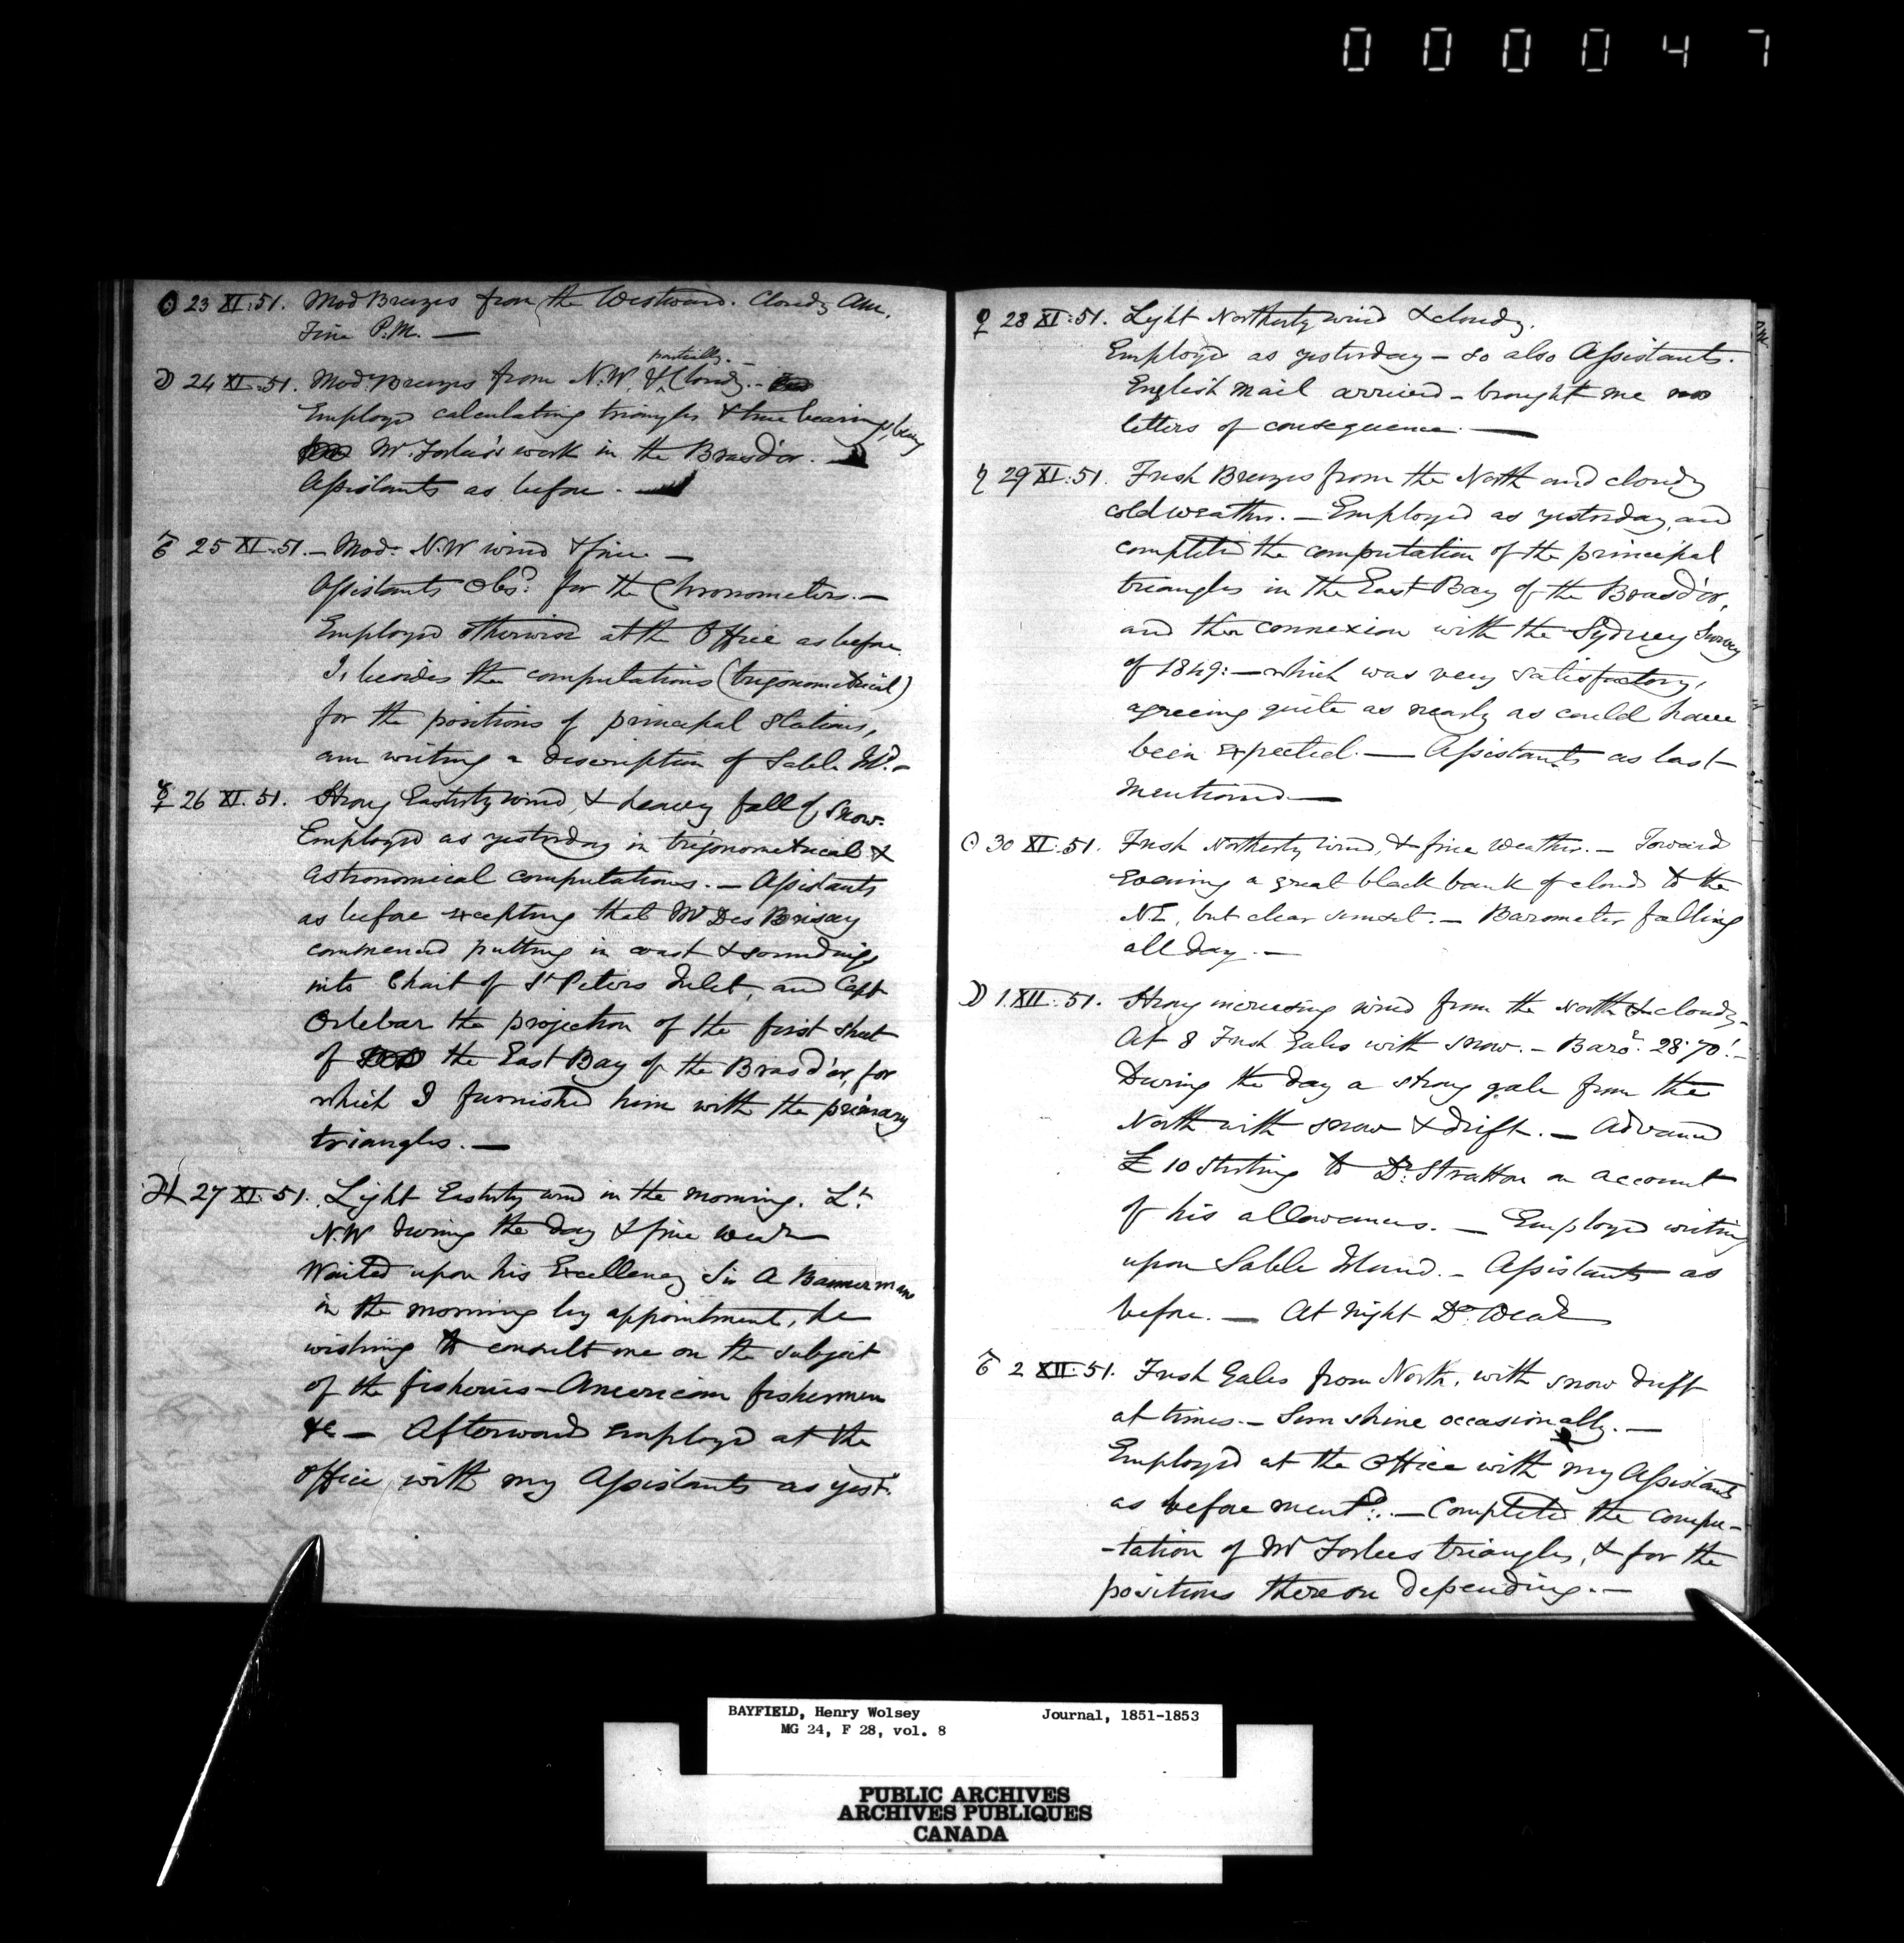 000047
☉ 23 XI:51. Mod Breezes from the Westward. Cloudy Am.
Fine P.M. —
☽ 24 XI:51. Mod: Breezes from N.W. & partially Cloudy. —
Employed calculating triangles & true bearings, being
Mr. Forbes's work in the Brasd'or. —
Assistants as before. —
♂ 25 XI:51. — Mod: N.W wind & fine —
Assistants Obsd. for the Chronometers. —
Employed otherwise at the Office as before
I, besides the computations (trigonometrical)
for the positions of principal stations,
am writing a description of Sable Id. —
☿ 26 XI. 51. Strong Easterly wind, & heavy fall of snow.
Employed as yesterday in trigonometrical &
astronomical computations. — Assistants
as before excepting that Mr Des Brisay
commenced putting in coast & soundings
into Chart of St Peters Inlet, and Capt
Orlebar the projection of the first sheet
of the East Bay of the Brasd'or, for
which I furnished him with the primary
triangles. —
♃ 27 XI:51. Light Easterly wind in the morning. Lt.
N.W during the day & fine wear
Waited upon his Excellency Sir A Bannerman
in the morning by appointment, he
wishing to consult me on the subject
of the fisheries — American fishermen
&c — Afterwards employed at the
office with my Assistants as yest.
♀ 28 XI:51. Light Northerly wind & cloudy.
Employed as yesterday — so also Assistants.
English mail arrived — brought me no
letters of consequence. —
♄ 29 XI:51. Fresh Breezes from the North and cloudy
cold weather. — Employed as yesterday, and
completed the computation of the principal
triangles in the East Bay of the Brasd'or,
and their connexion with the Sydney Survey
of 1849: — which was very satisfactory,
agreeing quite as nearly as could have
been expected. — Assistants as last
mentioned —
☉ 30 XI:51. Fresh Northerly wind, & fine weather. — Toward
Evening a great black bank of clouds to the
N.E, but clear sunset. — Barometer falling
all day. —
☽ 1. XII: 51. Strong increasing wind from the North & cloudy —
At 8 Fresh Gales with snow. — Baror. 28.70! —
During the day a strong gale from the
North with snow & drift. — Advanced
£10 sterling to Dr. Stratton on account
of his allowances. — Employed writing
upon Sable Island. — Assistants as
before. — At night Do. Wear
♂ 2 XII:51. Fresh Gales from North, with snow drift
at times. — Sunshine occasionally. —
Employed at the Office with my Assistants
as before mentd: — Completed the compu-
-tation of Mr Forbes triangles, & for the
positions thereon depending. —
BAYFIELD, Henry Wolsey Journal, 1851-1853
MG 24, F 28, vol. 8
PUBLIC ARCHIVES
ARCHIVES PUBLIQUES
CANADA